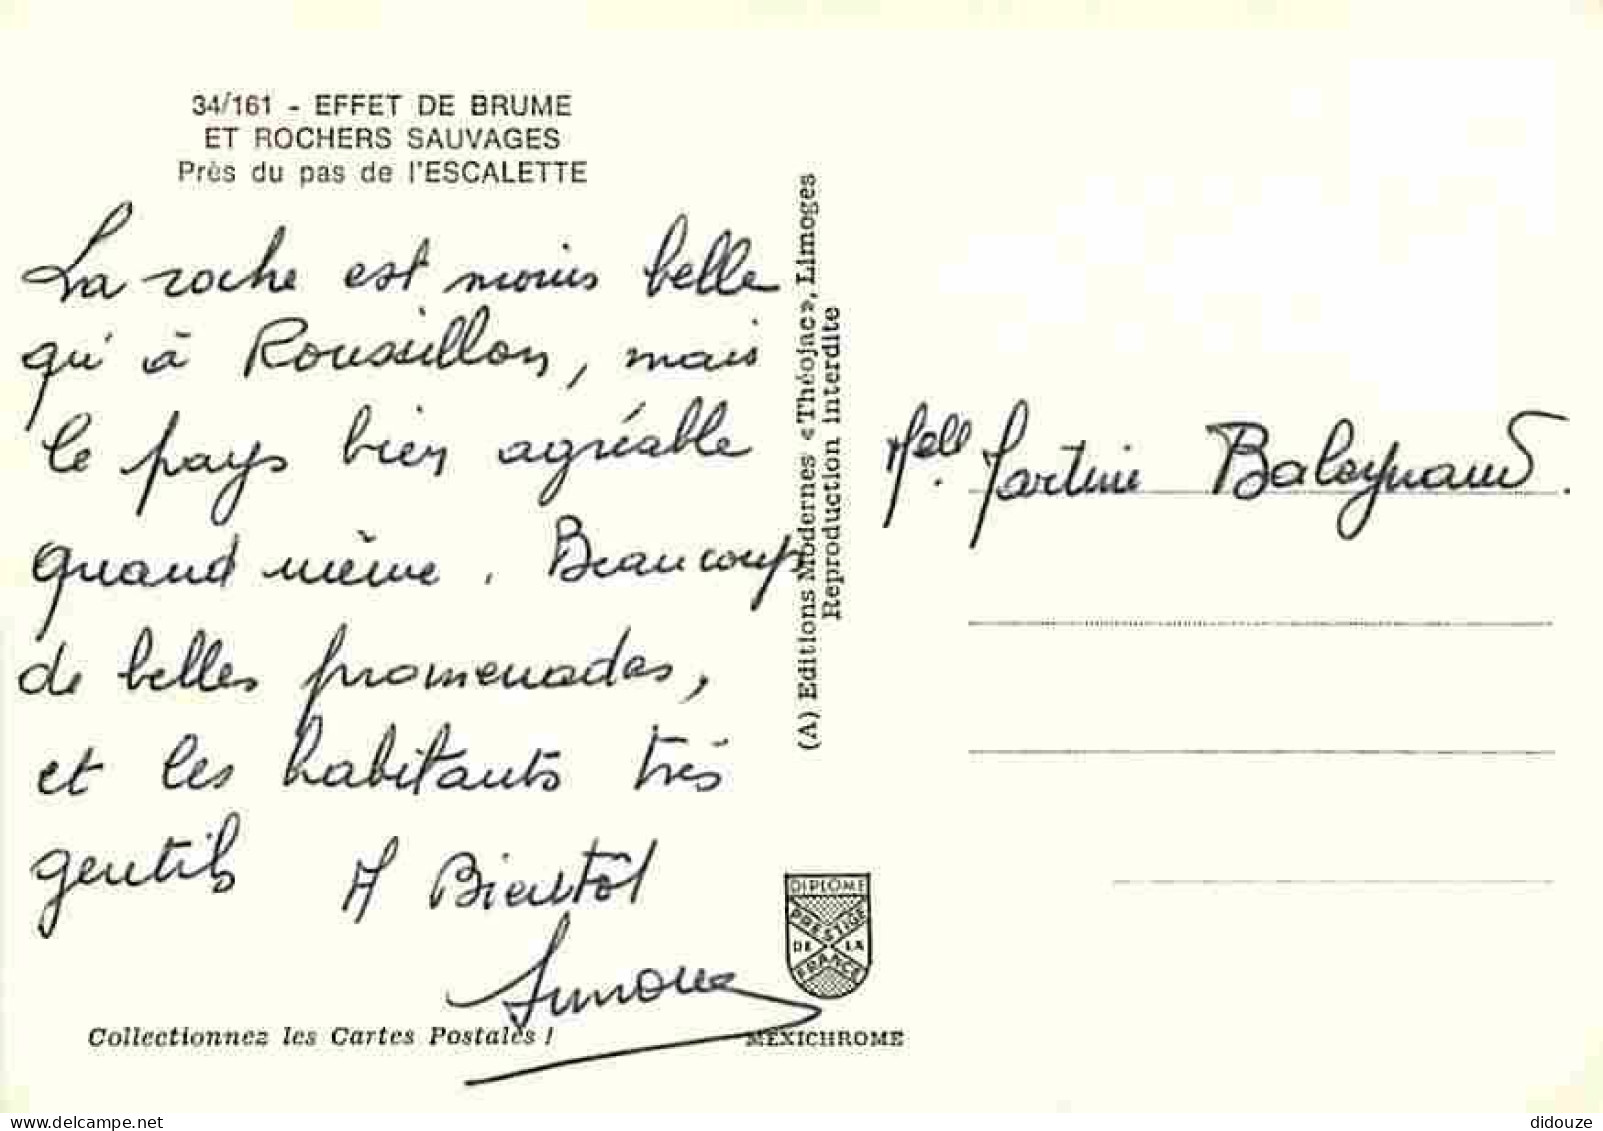 34/161 - EFFET DE BRUME
ET ROCHERS SAUVAGES
Près du pas de l'ESCALETTE
La roche est moins belle
qu'à Roussillon, mais
le pays bien agréable
quand même. Beaucoup
de belles promenades,
et les habitants très
gentils A Bientôt
Simone
Collectionnez les Cartes Postales !
(A) Editions Modernes «Théojac», Limoges
Reproduction interdite
Mell. Martine
DIPLOME
PRESTIGE
DE LA
FRANCE
MEXICHROME
didouze